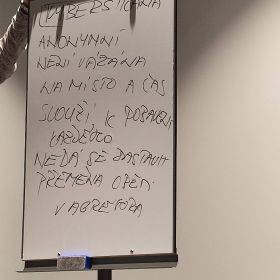 KYBERŠIKANA
ANONYMNÍ
NENÍ VÁZANÁ
NA MÍSTO A ČAS
SLOUŽÍ K POBAVENÍ
KAŽDÉHO
NEDÁ SE ZASTAVIT
PŘEMĚNA OBĚTI
V AGRESORA